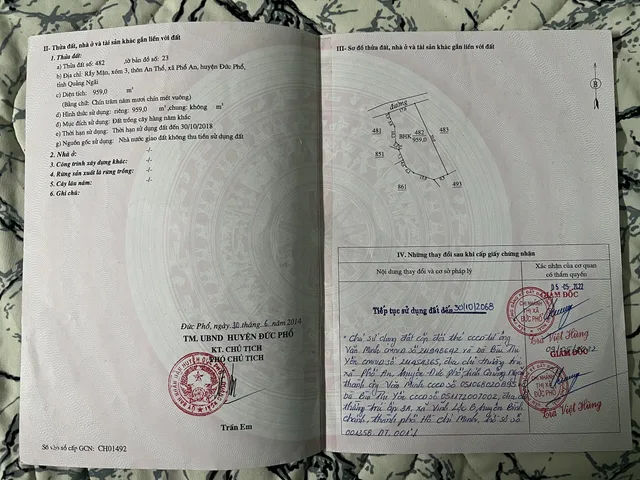 II- Thửa đất, nhà ở và tài sản khác gắn liền với đất
1. Thửa đất:
a) Thửa đất số: 482 , tờ bản đồ số: 23
b) Địa chỉ: Rẫy Mặn, xóm 3, thôn An Thổ, xã Phổ An, huyện Đức Phổ,
tỉnh Quảng Ngãi
c) Diện tích: 959,0 m²
(Bằng chữ: Chín trăm năm mươi chín mét vuông)
d) Hình thức sử dụng: riêng: 959,0 m², chung: không m²
đ) Mục đích sử dụng: Đất trồng cây hàng năm khác
e) Thời hạn sử dụng: Thời hạn sử dụng đất đến 30/10/2018
g) Nguồn gốc sử dụng: Nhà nước giao đất không thu tiền sử dụng đất
2. Nhà ở: -/-
3. Công trình xây dựng khác: -/-
4. Rừng sản xuất là rừng trồng: -/-
5. Cây lâu năm: -/-
6. Ghi chú:
Đức Phổ, ngày 30 tháng 6 năm 2014
TM. UBND HUYỆN ĐỨC PHỔ
KT. CHỦ TỊCH
PHÓ CHỦ TỊCH
Trần Em
Số vào sổ cấp GCN: CH01492
III- Sơ đồ thửa đất, nhà ở và tài sản khác gắn liền với đất
B
đường
481
BHK
482
959,0
483
851
861
493
IV. Những thay đổi sau khi cấp giấy chứng nhận
Nội dung thay đổi và cơ sở pháp lý
Xác nhận của cơ quan
có thẩm quyền
Tiếp tục sử dụng đất đến 30/10/2068
05-05-2022
GIÁM ĐỐC
CHI NHÁNH
THỊ XÃ
ĐỨC PHỔ
Trà Việt Hùng
- Chủ sử dụng đất cấp đổi thẻ CCCD từ ông
Văn Minh CMND số và bà Bùi Thị
Yến CMND số địa chỉ thường trú
xã Phổ An, huyện Đức Phổ, tỉnh Quảng Ngãi
thành ông Văn Minh CCCD số 051068020895
bà Bùi Thị Yến CCCD số 051172007002, địa chỉ
thường trú ấp 3A, xã Vĩnh Lộc B, huyện Bình
Chánh, thành phố Hồ Chí Minh, hồ sơ số
GIÁM ĐỐC
CHI NHÁNH
THỊ XÃ
ĐỨC PHỔ
Trà Việt Hùng